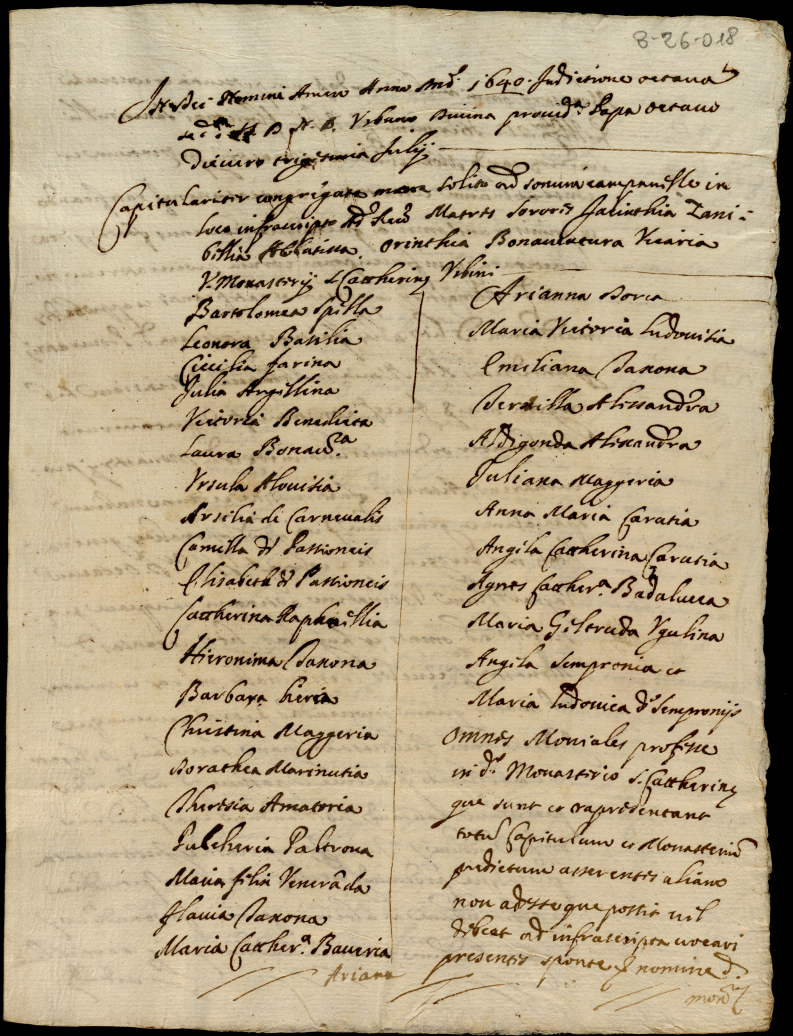 B-26-018
In Dei Nomine Amen Anno Mdⁱ 1640. Indictione octava
D. N. D. Urbano Divina provid.ᵃ Papa octavo
Die vero trigesima Julij
Capitulariter congregatæ more solito ad sonum campanelle in
loco infrascripto Ad.ᵉ Rev.ᵈᵉ Matres Sorores Jacinthia Zani-
billia Abbatissa, Orinthia Bonaventura Vicaria
V. Monasterij S. Cattherinę Urbini
Bartolomea Spilla
Leonora Basilia
Ciccilia farina
Julia Argillina
Victoria Benedicta
Laura Bonav.ʳᵃ
Ursula Alouisia
Arsilia di Carnevalis
Camilla de Passioneis
Elisabeth de Passioneis
Cattherina Raphaellia
Hieronima Saxona
Barbara
Christina Maggeria
Dorathea Marinutia
Theresia Amatoria
Pulcheria Paltrona
Maria filia Veneranda
flavia Saxona
Maria Catther.ᵃ Baveria
Ariana
Arianna
Maria Victoria Ludovisia
Emiliana Saxona
Alessandra
Aldigonda Alixandra
Juliana Maggeria
Anna Maria Caratia
Angila Cattherina Caratia
Agnes Catther.ᵃ Badalucca
Maria Geltruda Ugulina
Angila Sempronia et
Maria Ludovica de Sempronijs
Omnes Moniales professe
in d.º Monasterio S. Cattherinę
que sunt et rapresentant
totũ Capitulum et Monasteriũ
predictum asserentes aliam
non adesse que possit vel
debeat ad infrascripta vocari
presentes sponte et nomine d.ⁱ
mon.ʳⁱʲ